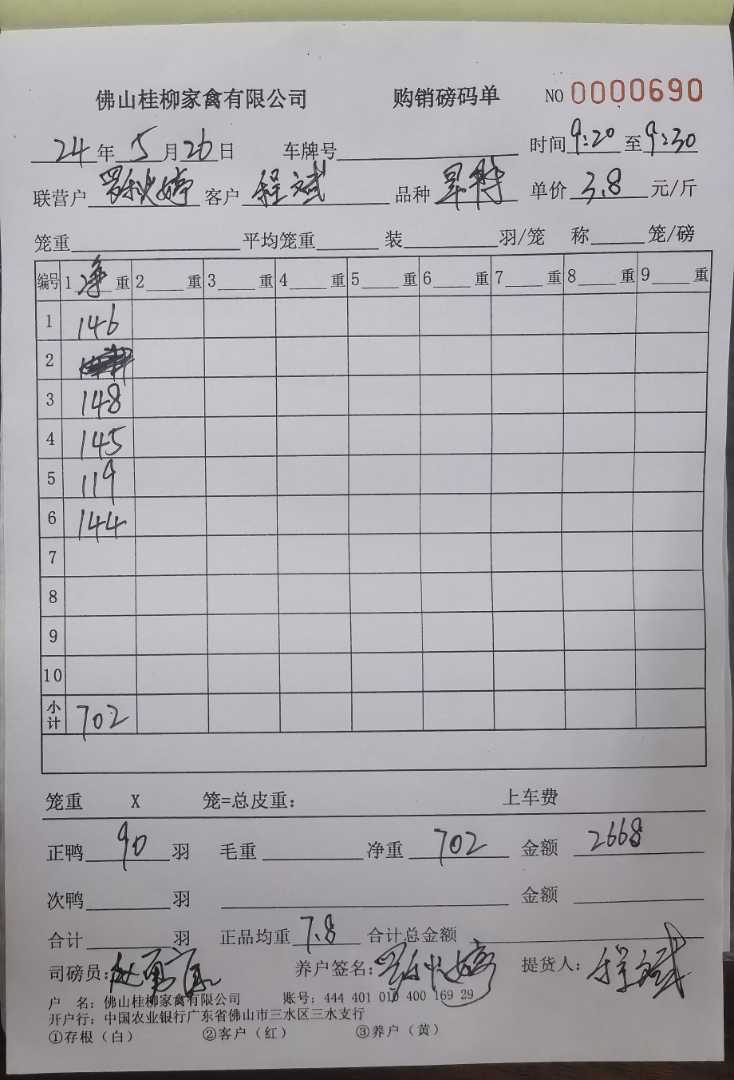 佛山桂柳家禽有限公司 购销磅码单 NO 0000690
24年5月26日 车牌号 时间9:20至9:30
联营户 客户 程斌 品种 单价 3.8 元/斤
笼重 平均笼重 装 羽/笼 称 笼/磅
编号 1净重 2 重 3 重 4 重 5 重 6 重 7 重 8 重 9 重
1 146
2
3 148
4 145
5 119
6 144
7
8
9
10
小计 702
笼重 X 笼=总皮重: 上车费
正鸭 90 羽 毛重 净重 702 金额 2668
次鸭 羽 金额
合计 羽 正品均重 7.8 合计总金额
司磅员: 养户签名: 提货人: 程斌
户 名: 佛山桂柳家禽有限公司 账号: 444 401 010 400 169 29
开户行: 中国农业银行广东省佛山市三水区三水支行
①存根(白) ②客户(红) ③养户(黄)